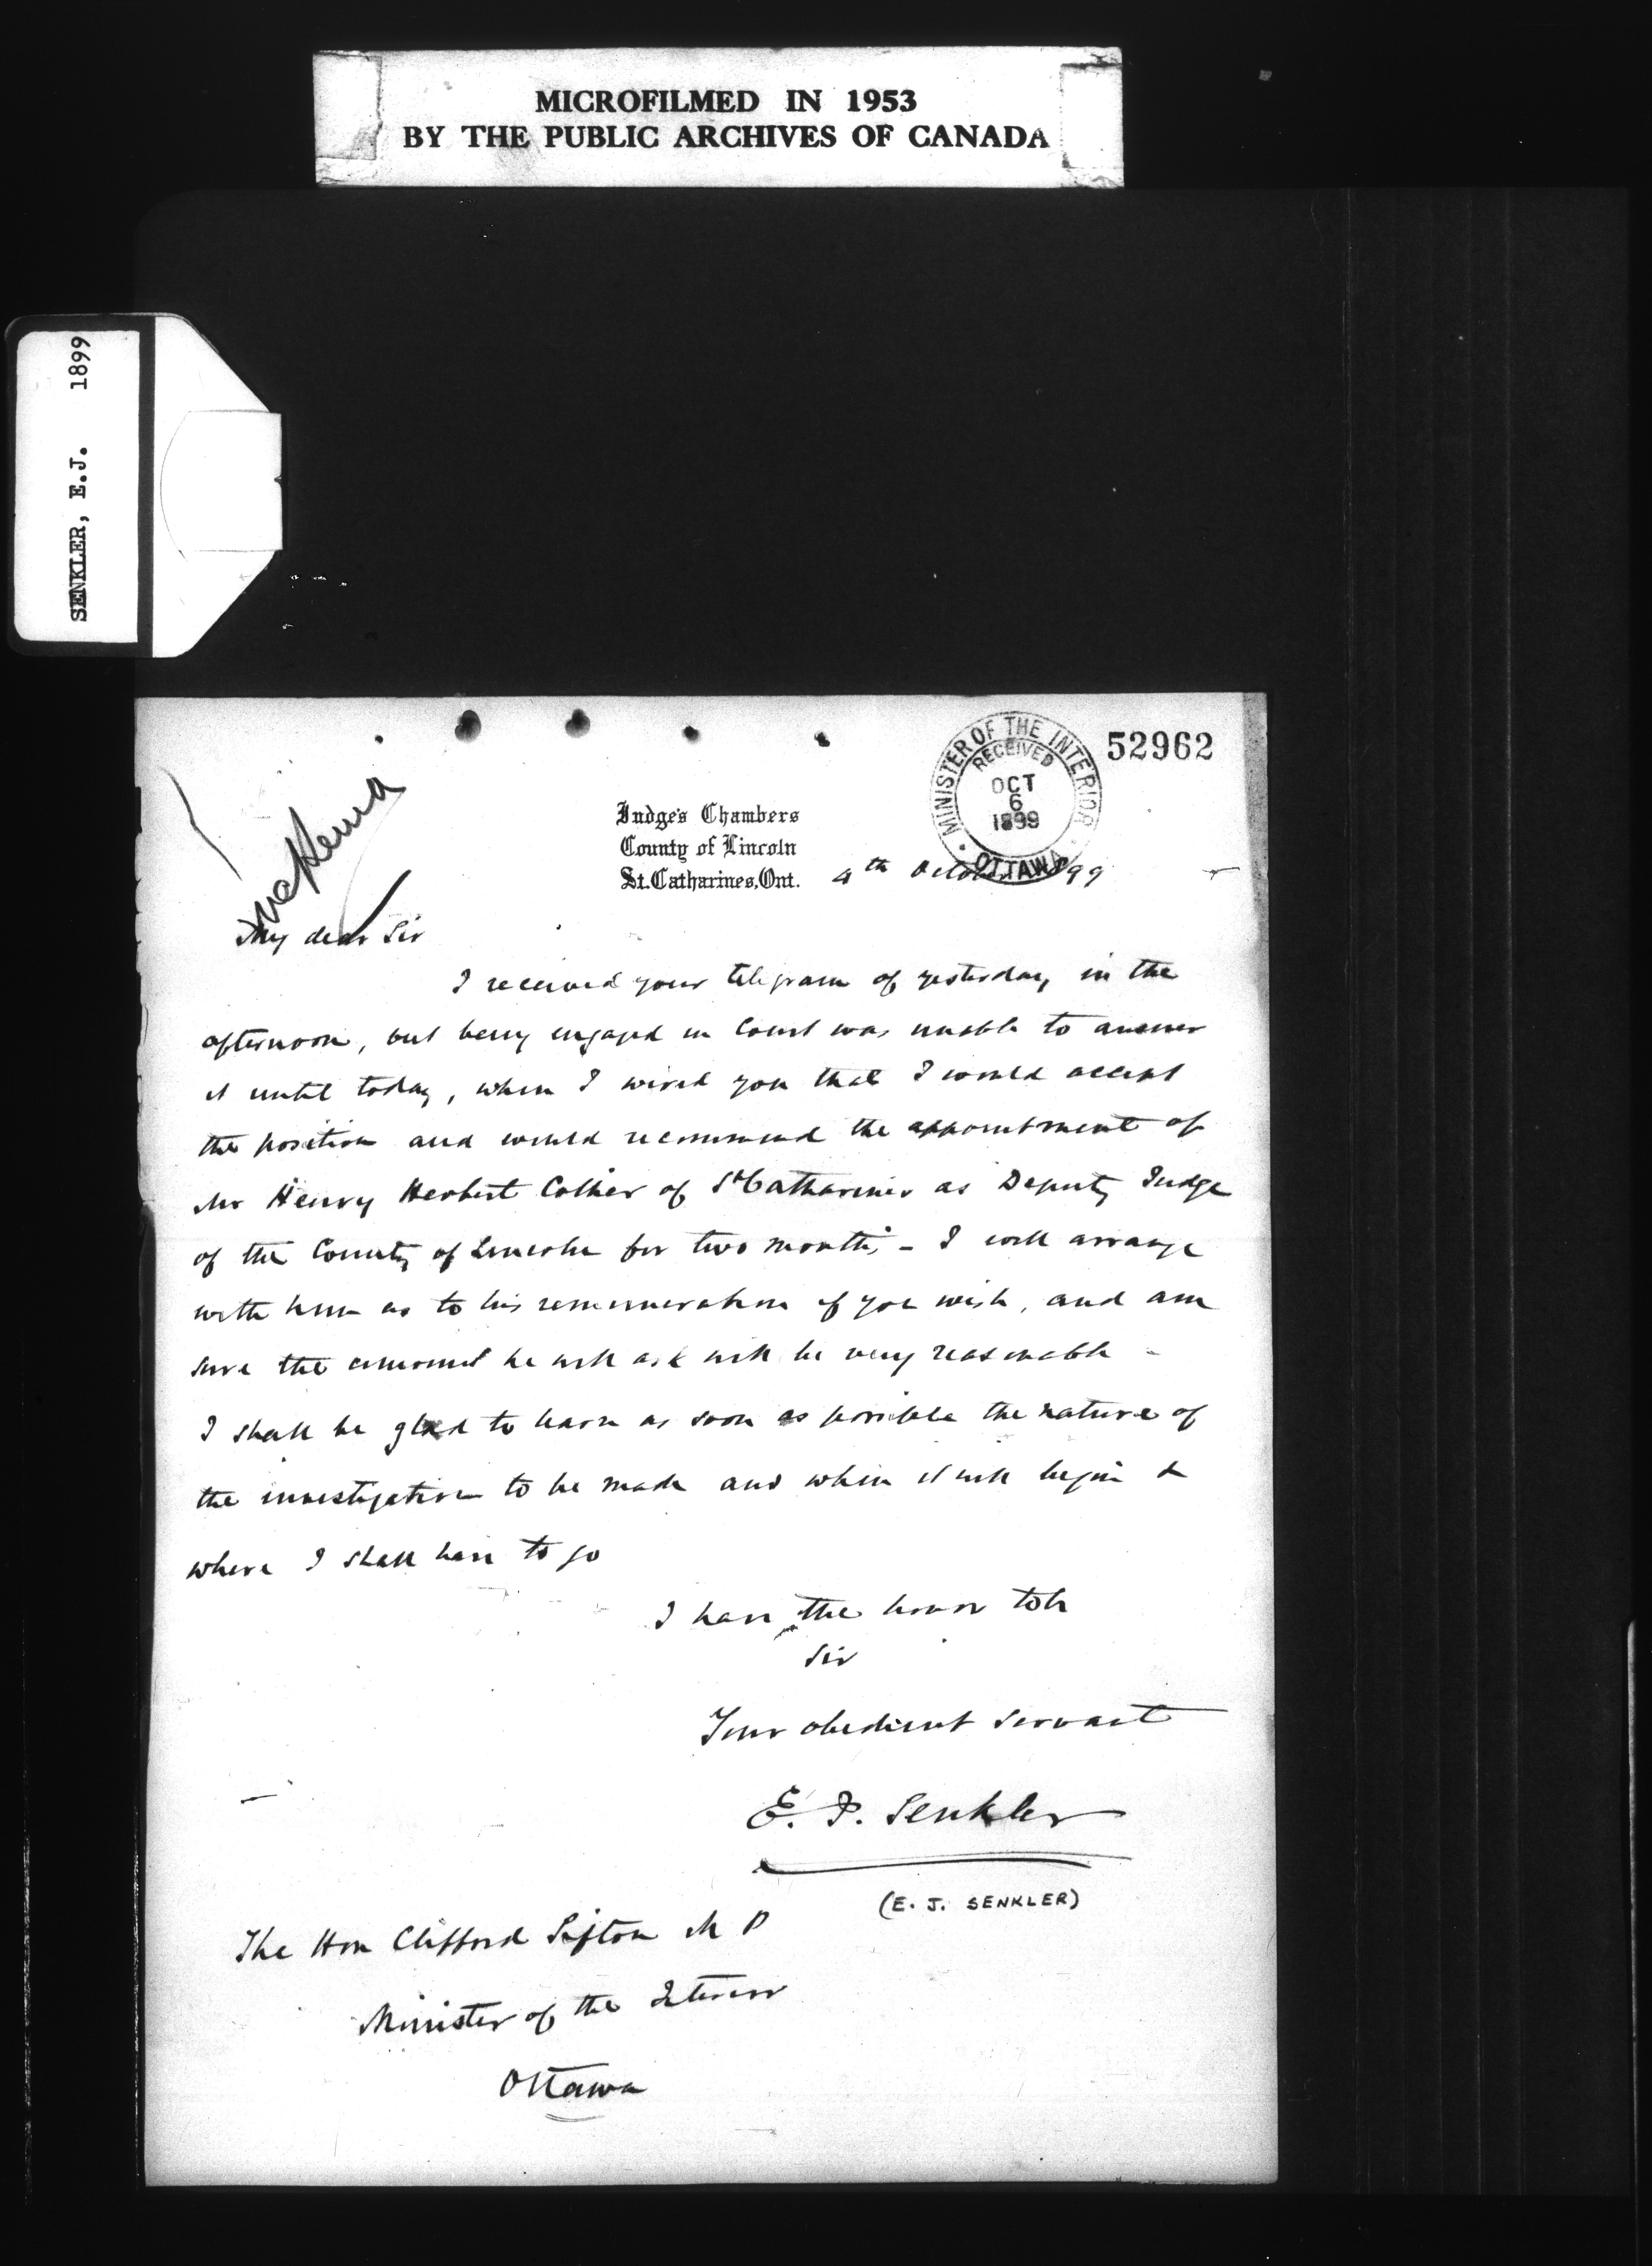 MICROFILMED IN 1953
BY THE PUBLIC ARCHIVES OF CANADA
SENKLER, E.J. 1899
52962
MINISTER OF THE INTERIOR
RECEIVED
OCT
6
1899
OTTAWA
Judge's Chambers
County of Lincoln
St. Catharines, Ont. 4th October 1899
My dear Sir
I received your telegram of yesterday in the
afternoon, but being engaged in Court was unable to answer
it until today, when I wired you that I would accept
the position and would recommend the appointment of
Mr Henry Herbert Collier of St Catharines as Deputy Judge
of the County of Lincoln for two months – I will arrange
with him as to his remuneration if you wish, and am
sure the amount he will ask will be very reasonable –
I shall be glad to learn as soon as possible the nature of
the investigation to be made and when it will begin &
where I shall have to go
I have the honor to be
Sir
Your obedient servant
E. J. Senkler
(E. J. SENKLER)
The Hon Clifford Sifton M P
Minister of the Interior
Ottawa